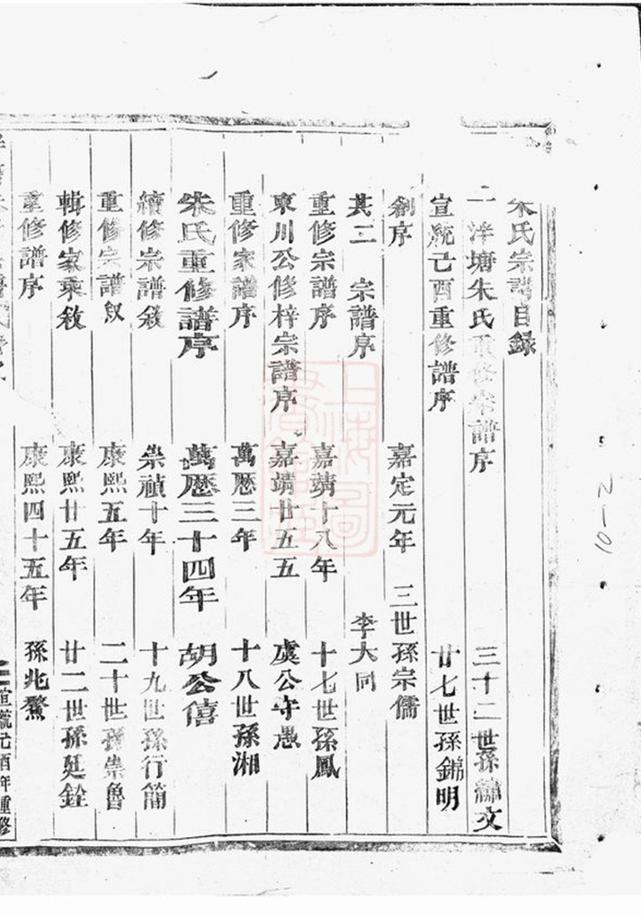 朱氏宗譜目録
洋塘朱氏重修宗譜序 三十二世孫繡文
宣統己酉重修譜序 廿七世孫錦明
創序 嘉定元年 三世孫宗儒
其二 宗譜序 李大同
重修宗譜序 嘉靖十八年 十七世孫鳳
東川公修梓宗譜序 嘉靖廿五五 虞公守愚
重修家譜序 萬厯三年 十八世孫湘
朱氏重修譜序 萬歷三十四年 胡公僖
續修宗譜敘 崇禎十年 十九世孫行簡
重修宗譜叙 康熙五年 二十世孫崇魯
輯修家乘敘 康熙廿五年 廿二世孫廷銓
重修譜序 康熙四十五年 孫兆鰲
宣統元酉年重修
上海圖書館藏
2-01